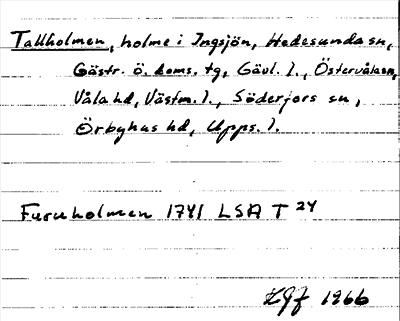 Tallholmen, holme i Ingsjön, Hedesunda sn,
Gästr. ö. doms. tg, Gävl. l., Östervåla sn,
Våla hd, Västm. l., Söderfors sn,
Örbyhus hd, Upps. l.
Furuholmen 1741 LSA T 24
1966